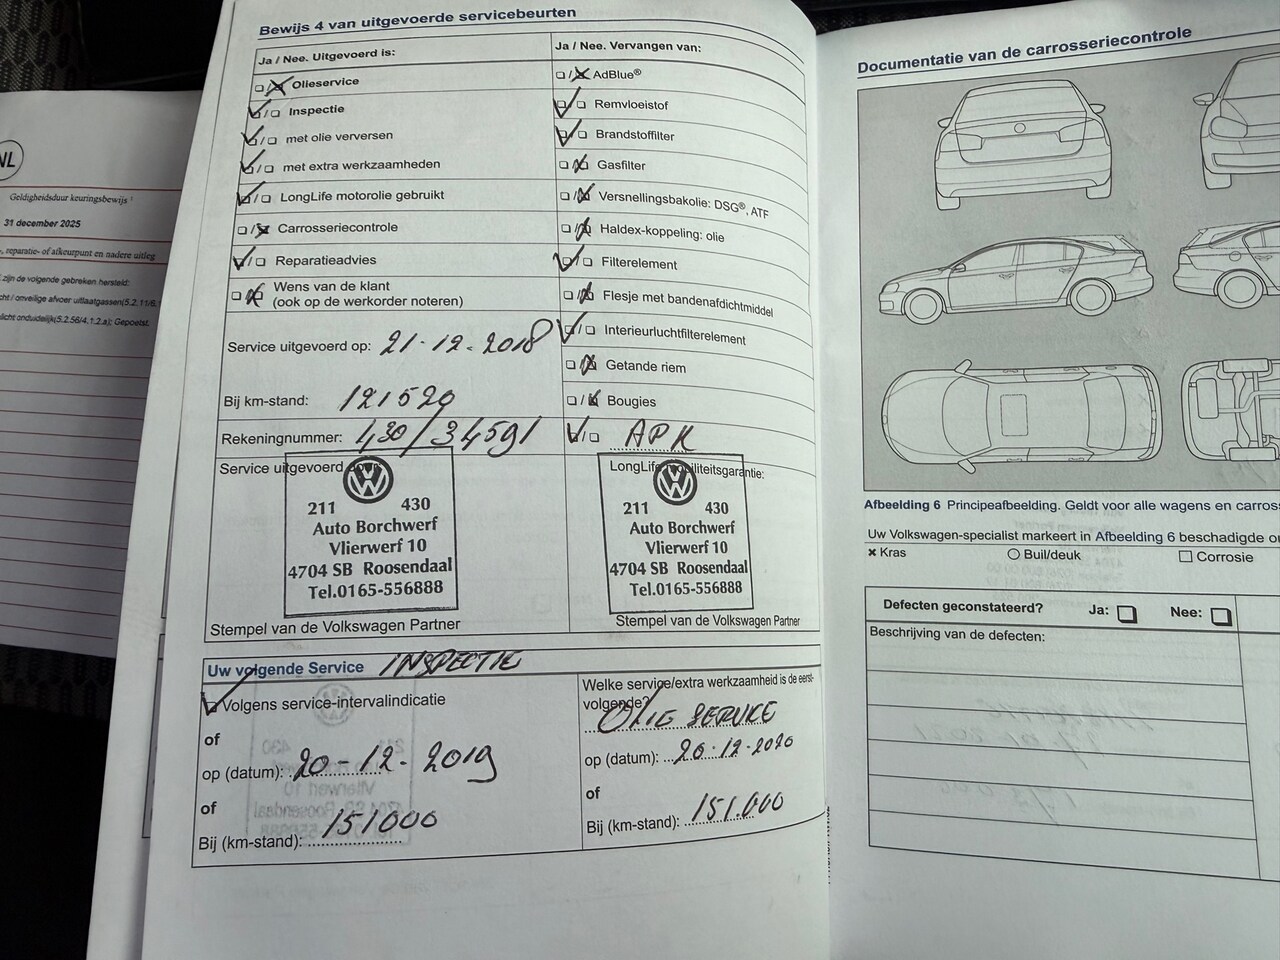 NL
Geldigheidsduur keuringsbewijs
31 december 2025
reparatie- of afkeurpunt en nadere uitleg
zijn de volgende gebreken hersteld:
Bewijs 4 van uitgevoerde servicebeurten
Ja / Nee. Uitgevoerd is:
Olieservice
Inspectie
met olie verversen
met extra werkzaamheden
LongLife motorolie gebruikt
Carrosseriecontrole
Reparatieadvies
Wens van de klant
(ook op de werkorder noteren)
Service uitgevoerd op: 21-12-2018
Bij km-stand: 121520
Rekeningnummer: 430/34591
Ja / Nee. Vervangen van:
AdBlue®
Remvloeistof
Brandstoffilter
Gasfilter
Versnellingsbakolie: DSG®, ATF
Haldex-koppeling: olie
Filterelement
Flesje met bandenafdichtmiddel
Interieurluchtfilterelement
Getande riem
Bougies
APK
Service uitgevoerd door:
211 430
Auto Borchwerf
Vlierwerf 10
4704 SB Roosendaal
Tel.0165-556888
Stempel van de Volkswagen Partner
LongLife mobiliteitsgarantie:
211 430
Auto Borchwerf
Vlierwerf 10
4704 SB Roosendaal
Tel.0165-556888
Stempel van de Volkswagen Partner
Uw volgende Service INSPECTIE
Volgens service-intervalindicatie
of
op (datum): 20-12-2019
of
Bij (km-stand): 151000
Welke service/extra werkzaamheid is de eerst-
volgende?
OLIE SERVICE
op (datum): 20-12-2020
of
Bij (km-stand): 151.000
Documentatie van de carrosseriecontrole
Afbeelding 6 Principeafbeelding. Geldt voor alle wagens en carross
Uw Volkswagen-specialist markeert in Afbeelding 6 beschadigde
Kras Buil/deuk Corrosie
Defecten geconstateerd? Ja: Nee:
Beschrijving van de defecten: